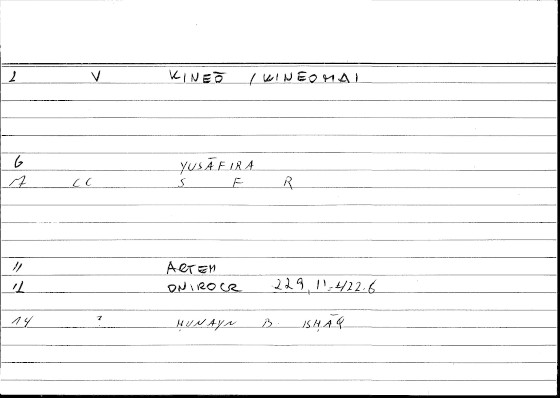 1 V KINEŌ / KINEOMAI
6 YUSĀFIRA
17 CC S F R
11 ARTEM
12 ONIROCR 229,11:422.6
14 ? ḤUNAYN B ISḤĀQ